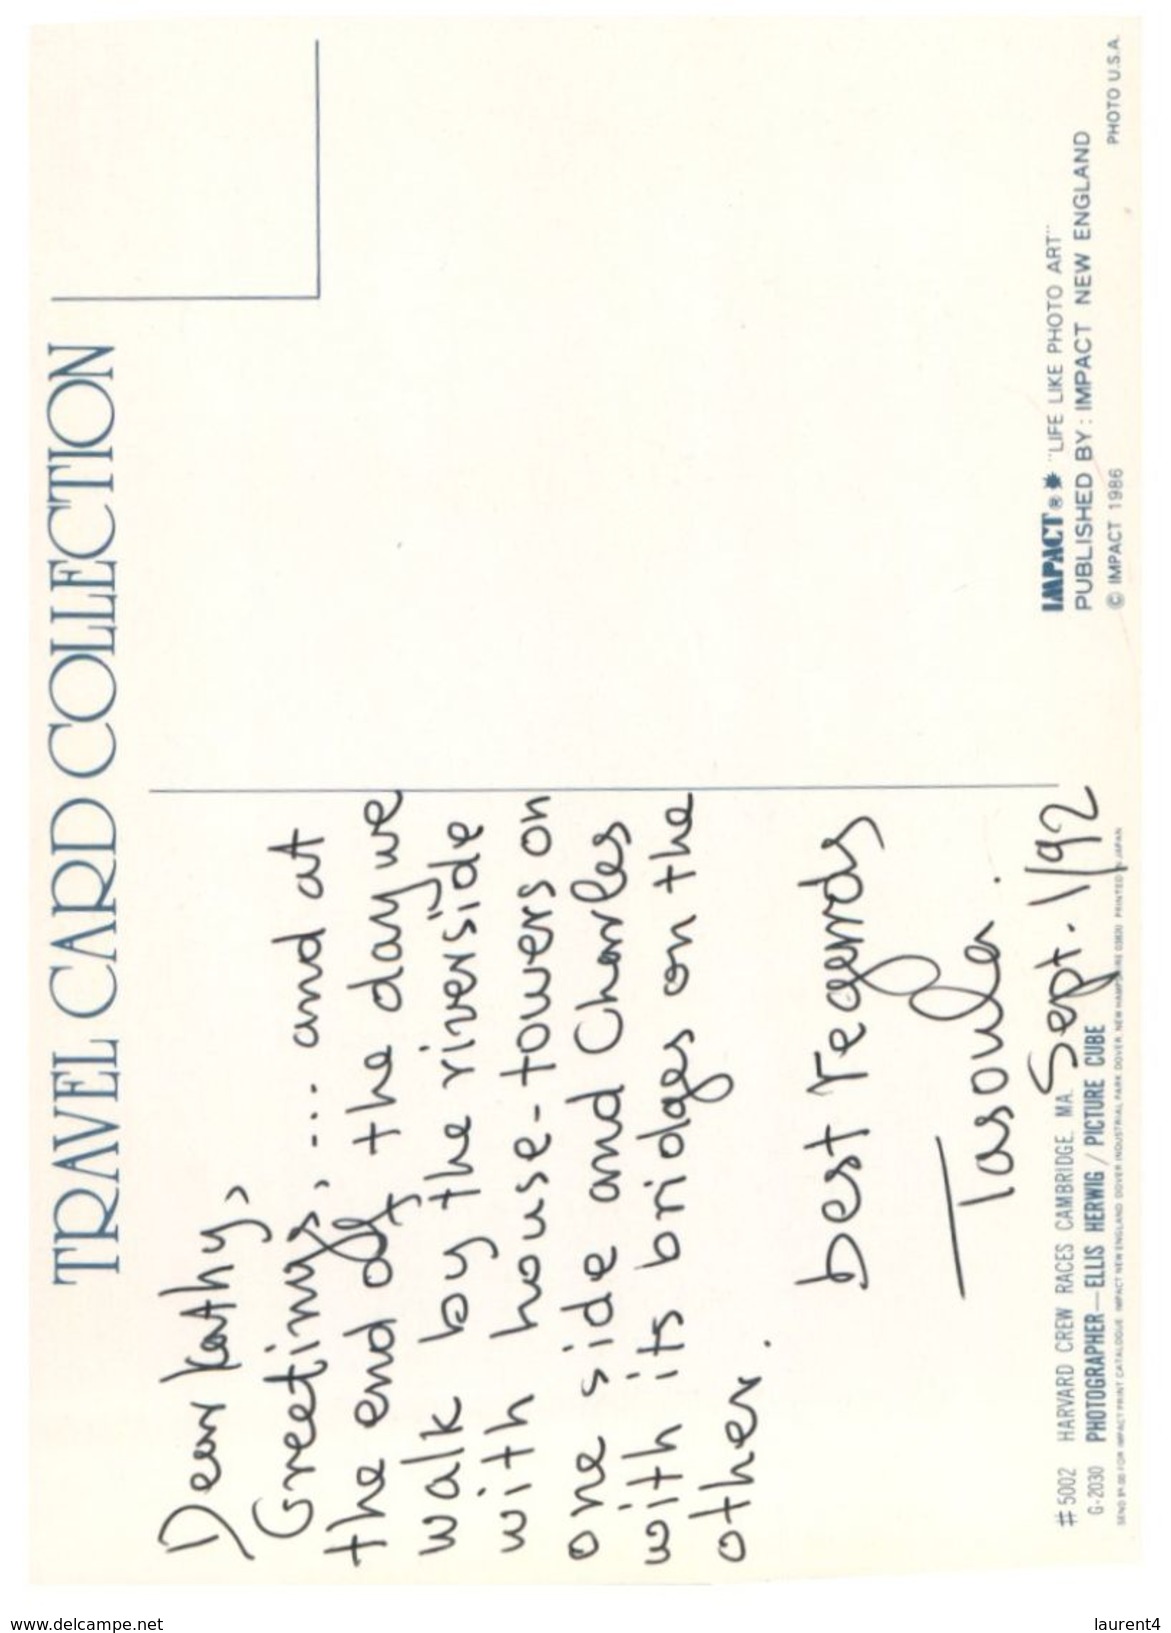 TRAVEL CARD COLLECTION
Dear Kathy,
Greetings, ... and at
the end of the day we
walk by the riverside
with house-towers on
one side and Charles
with its bridges on the
other.
best regards
Tasoula.
Sept. 1/92
# 5002 HARVARD CREW RACES CAMBRIDGE. MA.
G-2030 PHOTOGRAPHER—ELLIS HERWIG / PICTURE CUBE
SEND $1.00 FOR IMPACT PRINT CATALOGUE IMPACT NEW ENGLAND DOVER INDUSTRIAL PARK DOVER, NEW HAMPSHIRE 03820 PRINTED IN JAPAN
IMPACT® "LIFE LIKE PHOTO ART"
PUBLISHED BY: IMPACT NEW ENGLAND
© IMPACT 1986 PHOTO U.S.A.
www.delcampe.net
laurent4